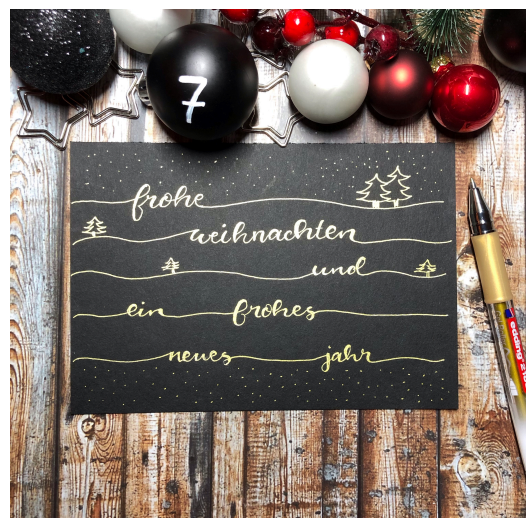 7
frohe
weihnachten
und
ein frohes
neues jahr
edding 218